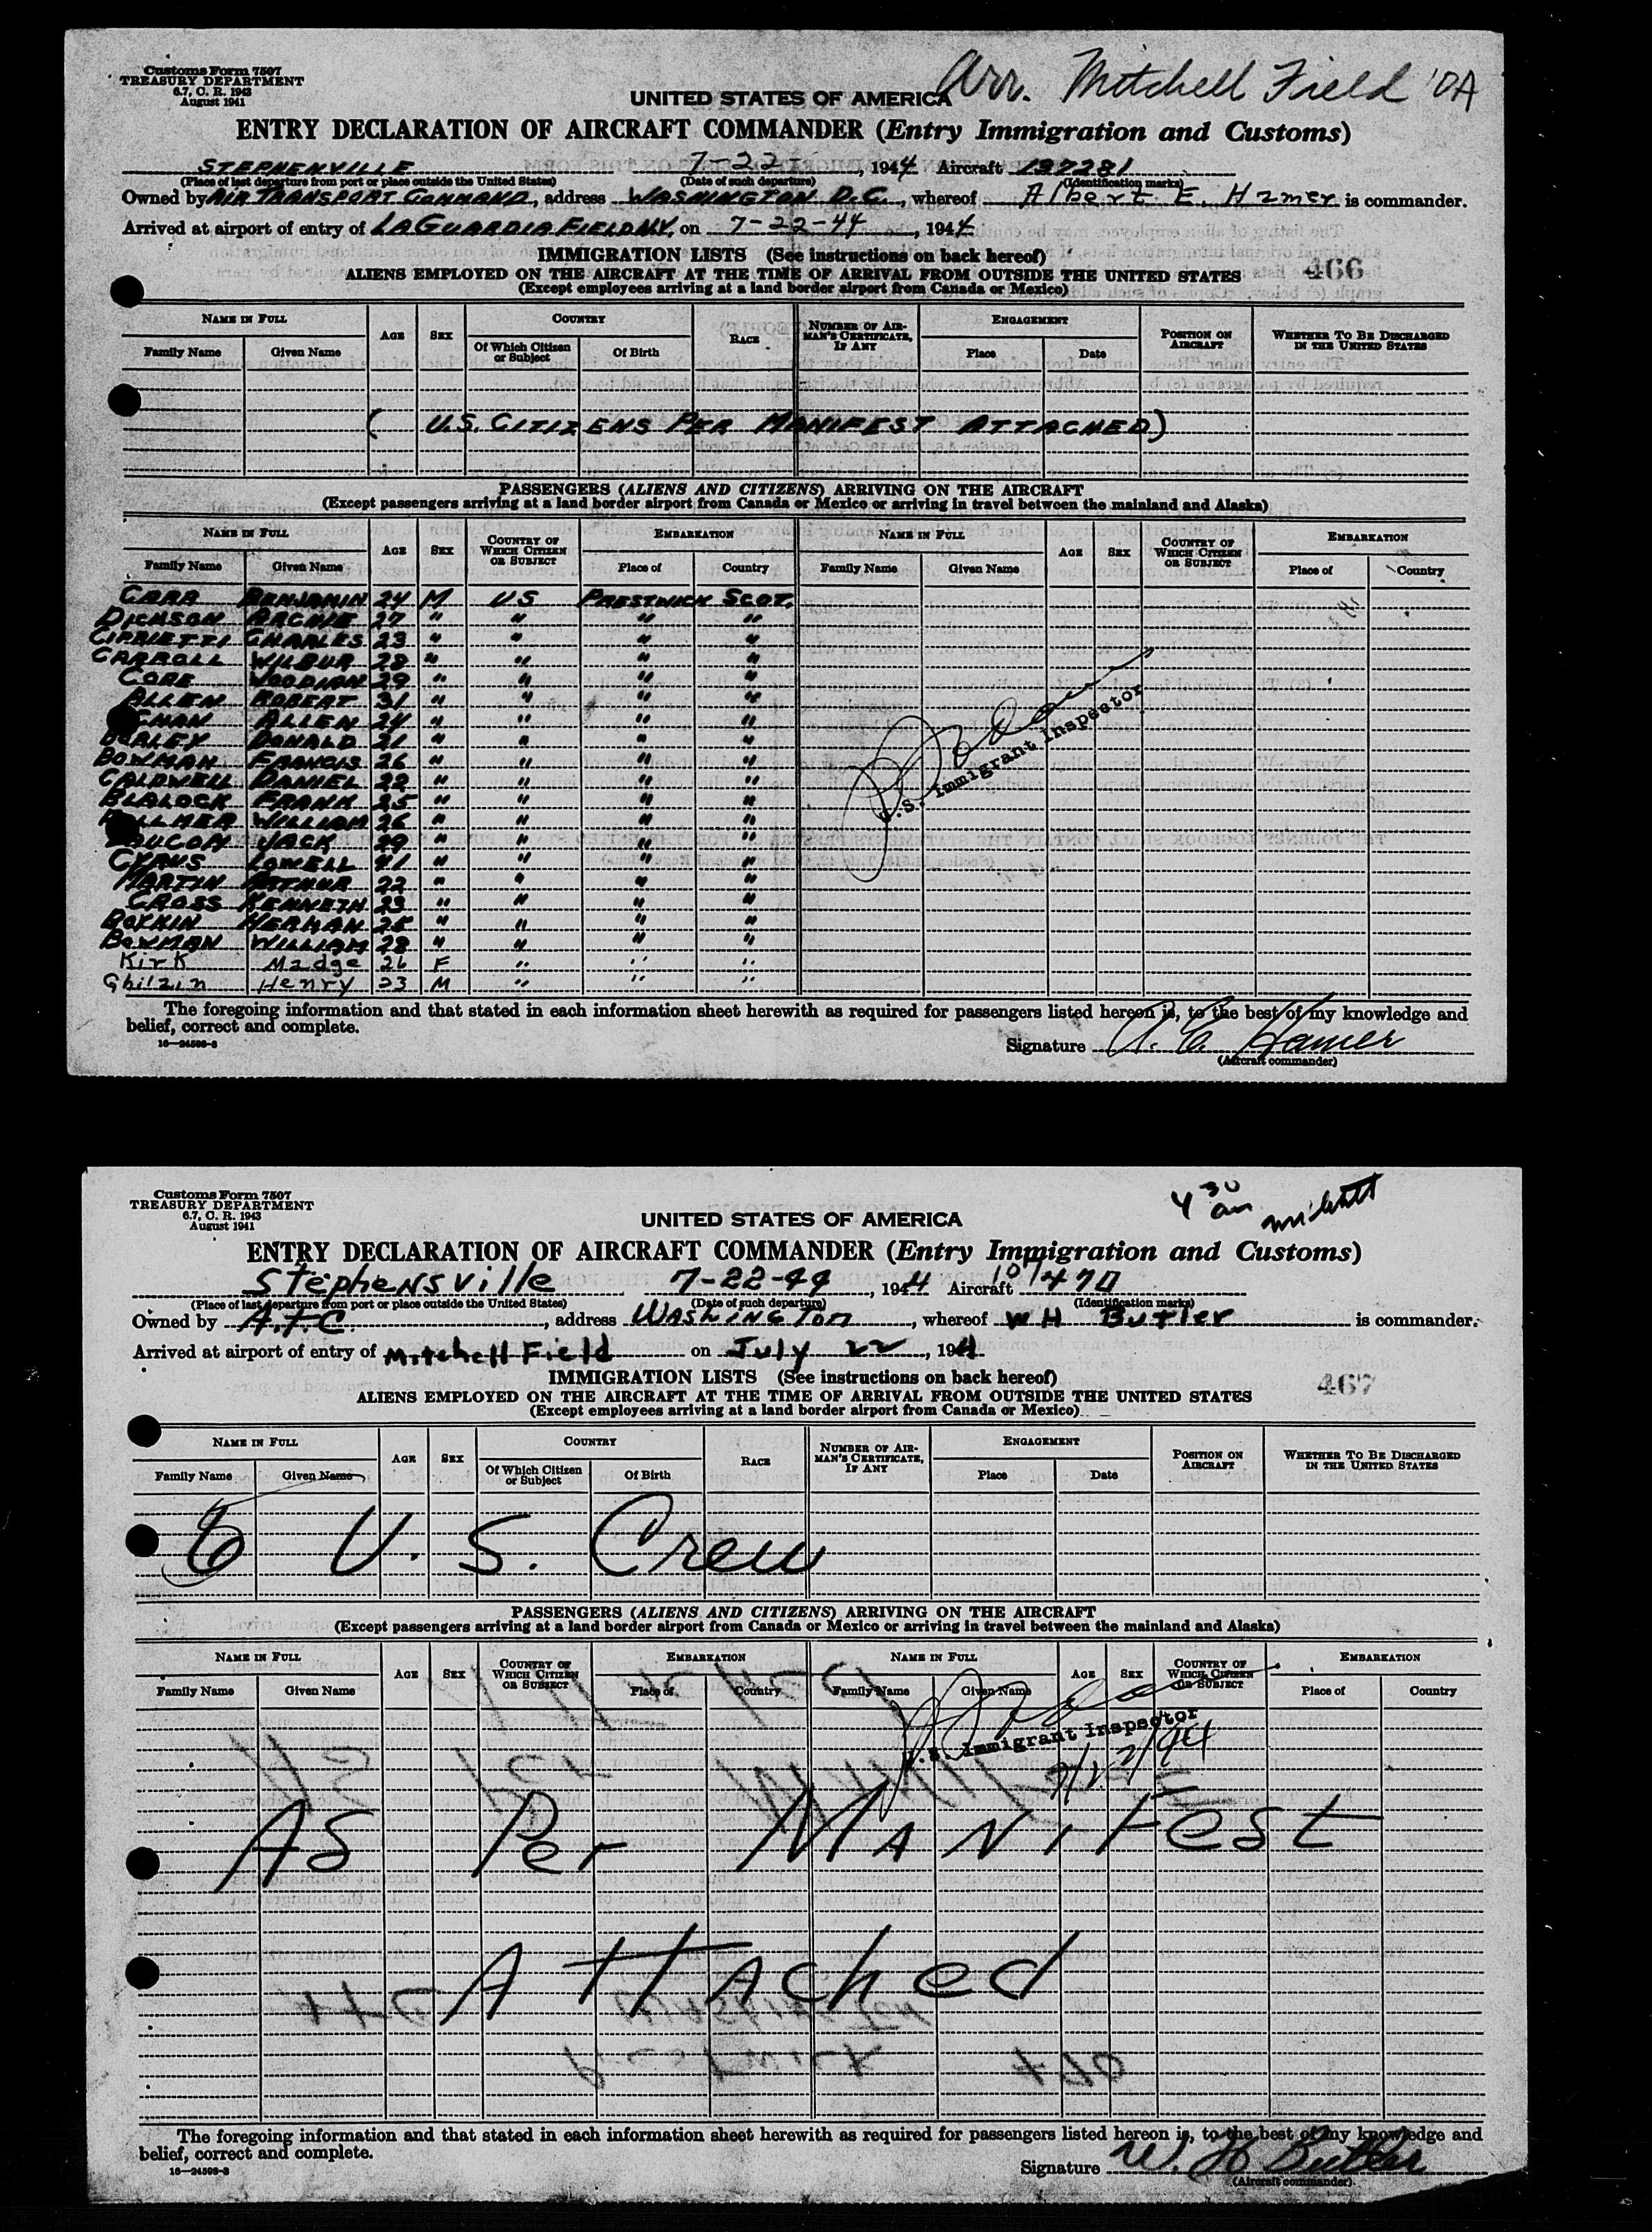 Customs Form 7507
TREASURY DEPARTMENT
6.7, C. R. 1943
August 1941
Arr. Mitchell Field
UNITED STATES OF AMERICA
ENTRY DECLARATION OF AIRCRAFT COMMANDER (Entry Immigration and Customs)
STEPHENVILLE 7-22- , 1944 Aircraft 137281
(Place of last departure from port or place outside the United States) (Date of such departure) (Identification marks)
Owned by AIR TRANSPORT COMMAND, address WASHINGTON D.C., whereof Albert E. Hamer is commander.
Arrived at airport of entry of LAGUARDIA FIELD NY. on 7-22-44, 1944
IMMIGRATION LISTS (See instructions on back hereof)
466
ALIENS EMPLOYED ON THE AIRCRAFT AT THE TIME OF ARRIVAL FROM OUTSIDE THE UNITED STATES
(Except employees arriving at a land border airport from Canada or Mexico)
NAME IN FULL AGE SEX COUNTRY RACE NUMBER OF AIRMAN'S CERTIFICATE, IF ANY ENGAGEMENT POSITION ON AIRCRAFT WHETHER TO BE DISCHARGED IN THE UNITED STATES
Family Name Given Name Of Which Citizen or Subject Of Birth Place Date
( U.S. CITIZENS PER MANIFEST ATTACHED)
PASSENGERS (ALIENS AND CITIZENS) ARRIVING ON THE AIRCRAFT
(Except passengers arriving at a land border airport from Canada or Mexico or arriving in travel between the mainland and Alaska)
NAME IN FULL AGE SEX COUNTRY OF WHICH CITIZEN OR SUBJECT EMBARKATION NAME IN FULL AGE SEX COUNTRY OF WHICH CITIZEN OR SUBJECT EMBARKATION
Family Name Given Name Place of Country Family Name Given Name Place of Country
CARR BENJAMIN 24 M US PRESTWICK SCOT.
DICKSON ARCHIE 27 " " " "
CIPRIETTI CHARLES 23 " " " "
CARROLL WILBUR 28 " " " "
CORE 29 " " " "
ALLEN ROBERT 31 " " " "
ALLEN 24 " " " "
DONALD 21 " " " "
BOWMAN FRANCIS 26 " " " "
CALDWELL DANIEL 22 " " " "
BLALOCK FRANK 25 " " " "
WILLIAM 26 " " " "
JACK 29 " " " "
CYRUS LOWELL 41 " " " "
MARTIN ARTHUR 22 " " " "
CROSS KENNETH 23 " " " "
BOYKIN HERMAN 25 " " " "
BOWMAN WILLIAM 28 " " " "
Kirk Madge 26 F " " "
Henry 23 M " " "
U.S. Immigrant Inspector
The foregoing information and that stated in each information sheet herewith as required for passengers listed hereon is, to the best of my knowledge and
belief, correct and complete.
16—24598-2
Signature A. E. Hamer
(Aircraft commander)
Customs Form 7507
TREASURY DEPARTMENT
6.7, C. R. 1943
August 1941
4 30 am
UNITED STATES OF AMERICA
ENTRY DECLARATION OF AIRCRAFT COMMANDER (Entry Immigration and Customs)
Stephensville 7-22-44, 1944 Aircraft 107470
(Place of last departure from port or place outside the United States) (Date of such departure) (Identification marks)
Owned by A.T.C., address WASHINGTON, whereof W H Butler is commander.
Arrived at airport of entry of Mitchell Field on July 22, 194
IMMIGRATION LISTS (See instructions on back hereof)
467
ALIENS EMPLOYED ON THE AIRCRAFT AT THE TIME OF ARRIVAL FROM OUTSIDE THE UNITED STATES
(Except employees arriving at a land border airport from Canada or Mexico)
NAME IN FULL AGE SEX COUNTRY RACE NUMBER OF AIRMAN'S CERTIFICATE, IF ANY ENGAGEMENT POSITION ON AIRCRAFT WHETHER TO BE DISCHARGED IN THE UNITED STATES
Family Name Given Name Of Which Citizen or Subject Of Birth Place Date
6 U. S. Crew
PASSENGERS (ALIENS AND CITIZENS) ARRIVING ON THE AIRCRAFT
(Except passengers arriving at a land border airport from Canada or Mexico or arriving in travel between the mainland and Alaska)
NAME IN FULL AGE SEX COUNTRY OF WHICH CITIZEN OR SUBJECT EMBARKATION NAME IN FULL AGE SEX COUNTRY OF WHICH CITIZEN OR SUBJECT EMBARKATION
Family Name Given Name Place of Country Family Name Given Name Place of Country
U.S. Immigrant Inspector
7/22/44
As Per MANiFest
ATTAched
The foregoing information and that stated in each information sheet herewith as required for passengers listed hereon is, to the best of my knowledge and
belief, correct and complete.
16—24598-2
Signature W. H Butler
(Aircraft commander)